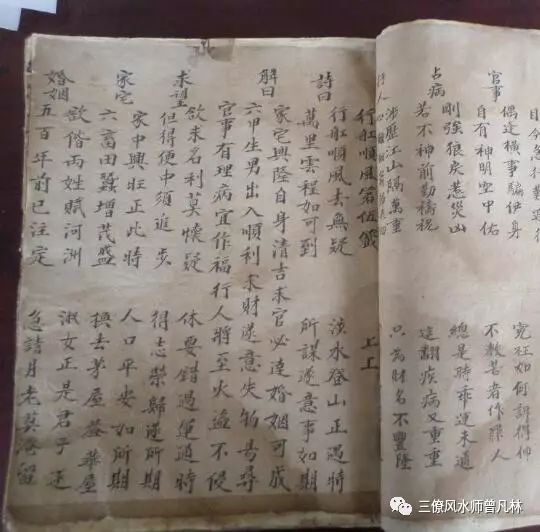 官事
偶逢橫事騙伊身 冤枉如何訴得伸
自有神明空中佑 不教善者作罪人
占病
剛強狼戾惹災凶 總是時乖運未通
若不神前勤禱祝 疾病又重重
行人
涉歷江山隔萬重 只為財名不豐隆
行舡順風第伍籤 上上
詩曰
行舡順風去無疑 淡水登山正遇時
萬里雲程如可到 所謀遂意事如期
解曰
家宅興隆自身清吉求官必達婚姻可成
六甲生男出入順利求財遂意失物易尋
官事有理病宜作福行人將至火盜不侵
求望
欲求名利莫懷疑 休要錯過運通時
但得便中須進步 得志榮歸遂所期
家宅
家中興旺正比時 人口平安如所期
六畜田蠶增茂盛 換去茅屋蓋華屋
婚姻
欲偕兩姓賦河洲 淑女正是君子逑
五百年前已注定 急請月老莫淹留
三僚风水师曾凡林